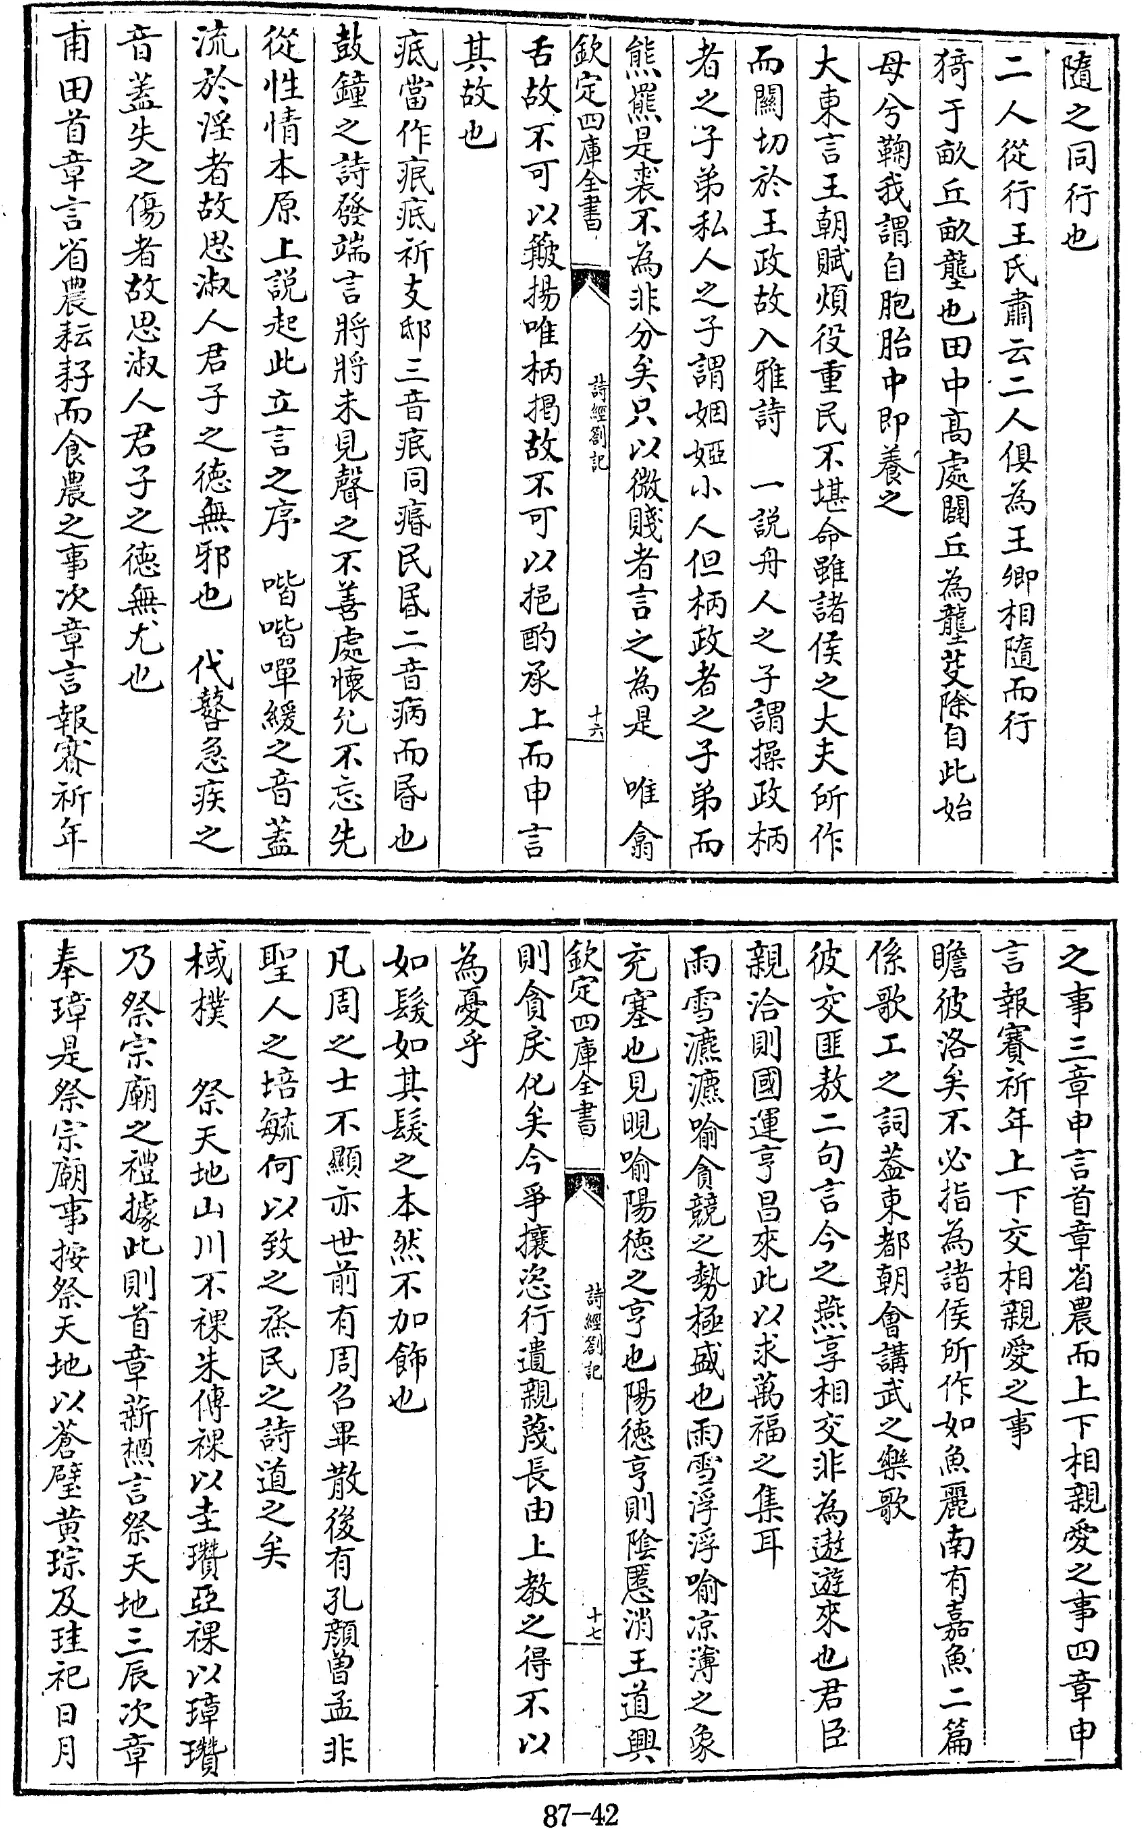 隨之同行也
二人從行王氏肅云二人俱為王卿相隨而行
猗于畝丘畝壟也田中高處闢丘為壟芟除自此始
母兮鞠我謂自胞胎中即養之
大東言王朝賦煩役重民不堪命雖諸侯之大夫所作
而關切於王政故入雅詩　一説舟人之子謂操政柄
者之子弟私人之子謂姻婭小人但柄政者之子弟而
熊羆是裘不為非分矣只以微賤者言之為是　唯翕
欽定四庫全書
詩經劄記
十六
舌故不可以簸揚唯柄揭故不可以挹酌承上而申言
其故也
疧當作痻疧祈支邸三音痻同瘖民昬二音病而昬也
鼓鐘之詩發端言將將未見聲之不善處懷允不忘先
從性情本原上説起此立言之序　喈喈嘽緩之音蓋
流於淫者故思淑人君子之徳無邪也　伐鼛急疾之
音蓋失之傷者故思淑人君子之徳無尤也
甫田首章言省農耘耔而食農之事次章言報賽祈年
之事三章申言首章省農而上下相親愛之事四章申
言報賽祈年上下交相親愛之事
瞻彼洛矣不必指為諸侯所作如魚麗南有嘉魚二篇
係歌工之詞葢東都朝會講武之樂歌
彼交匪敖二句言今之燕享相交非為遨遊來也君臣
親洽則國運亨昌來此以求萬福之集耳
雨雪瀌瀌喻貪競之勢極盛也雨雪浮浮喻凉薄之象
充塞也見晛喻陽徳之亨也陽徳亨則陰慝消王道興
欽定四庫全書
詩經劄記
十七
則貪戾化矣今爭攘恣行遺親蔑長由上教之得不以
為憂乎
如髦如其髦之本然不加飾也
凡周之士不顯亦世前有周召畢散後有孔顔曽孟非
聖人之培毓何以致之烝民之詩道之矣
棫樸　祭天地山川不祼朱傳祼以圭瓚亞祼以璋瓚
乃祭宗廟之禮據此則首章薪槱言祭天地三辰次章
奉璋是祭宗廟事按祭天地以蒼璧黄琮及珪祀日月
87-42